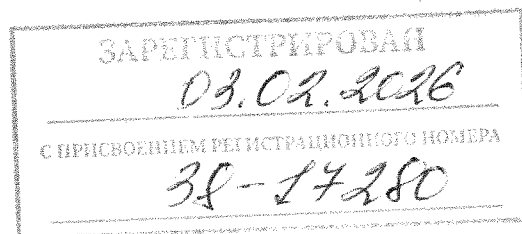 ЗАРЕГИСТРИРОВАН
03.02.2026
С ПРИСВОЕНИЕМ РЕГИСТРАЦИОННОГО НОМЕРА
38-17280